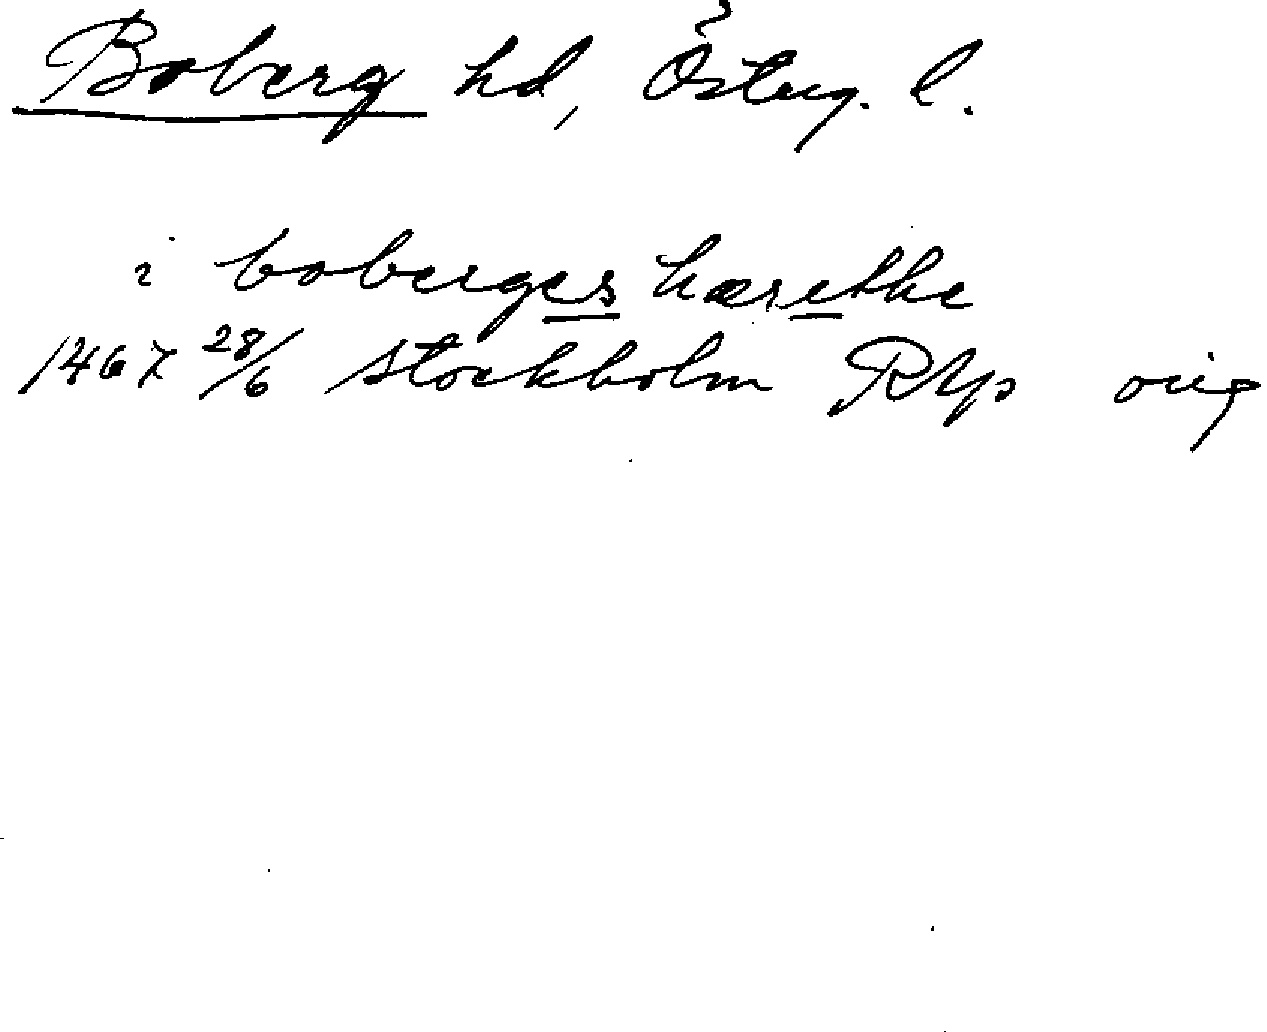 Boberg hd, Österg. l.
i boberges hærethe
1467 28/6 Stockholm RAp orig